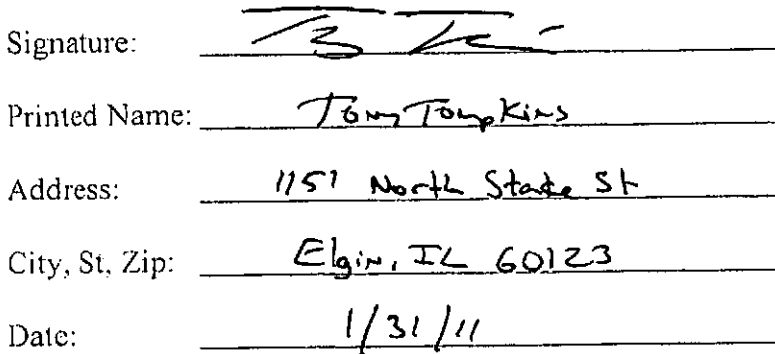 Signature:
Printed Name: Tony Tompkins
Address: 1151 North State St
City, St, Zip: Elgin, IL 60123
Date: 1/31/11